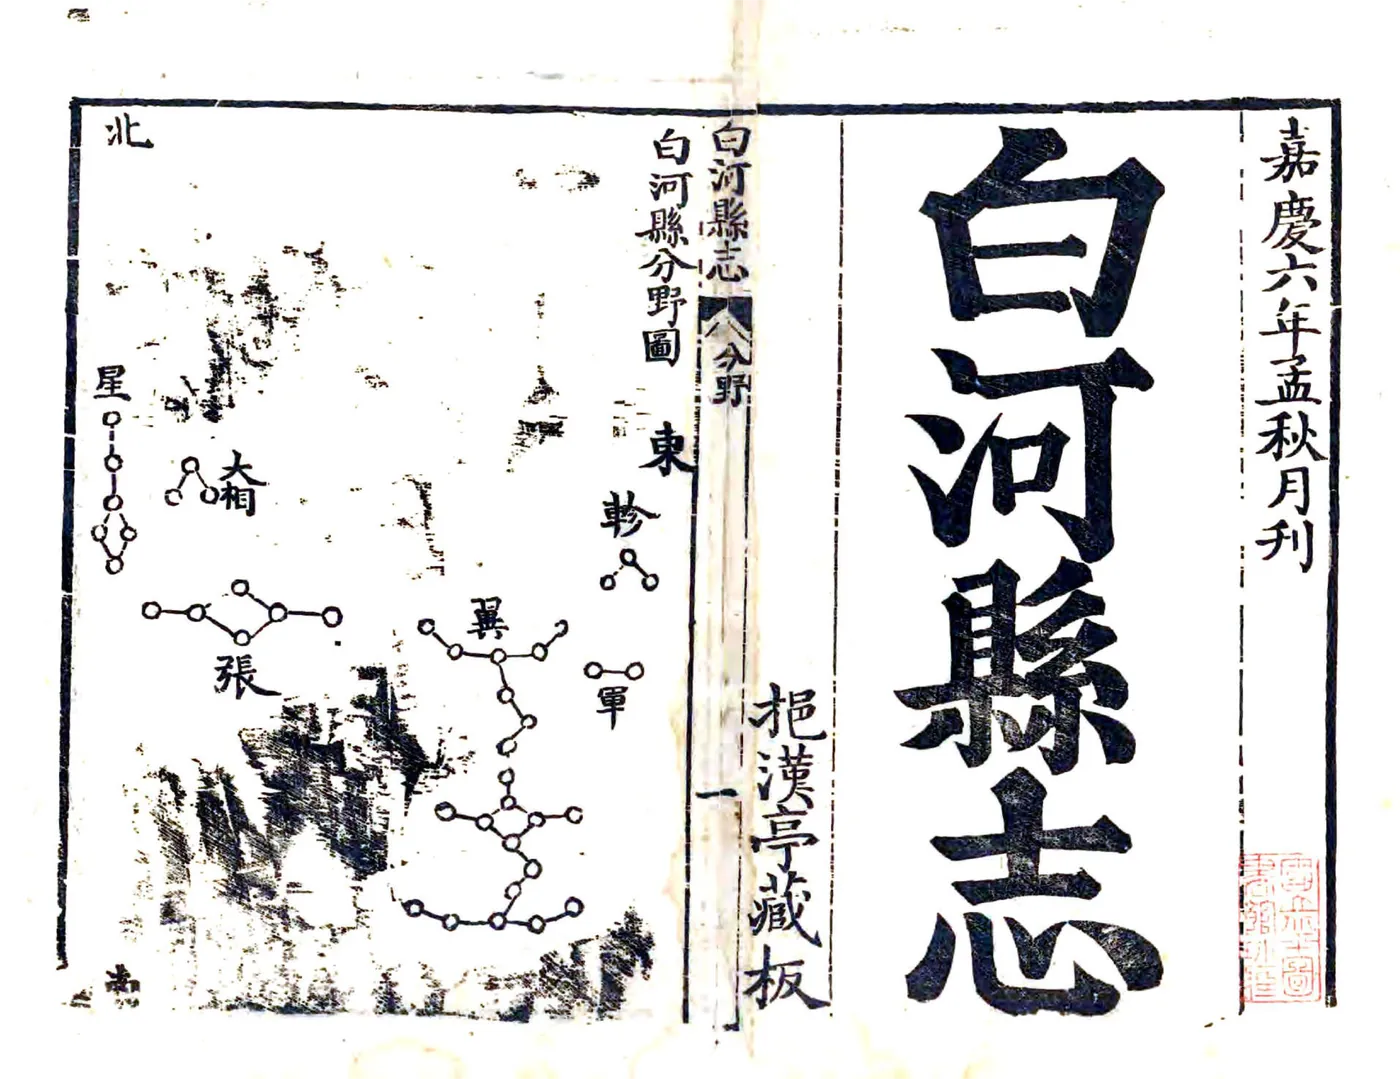 嘉慶六年孟秋月刊
白河縣志
挹漢亭藏板
白河縣志
分野
一
白河縣分野圖
東
軫
軍
翼
北
星
大相
張
南